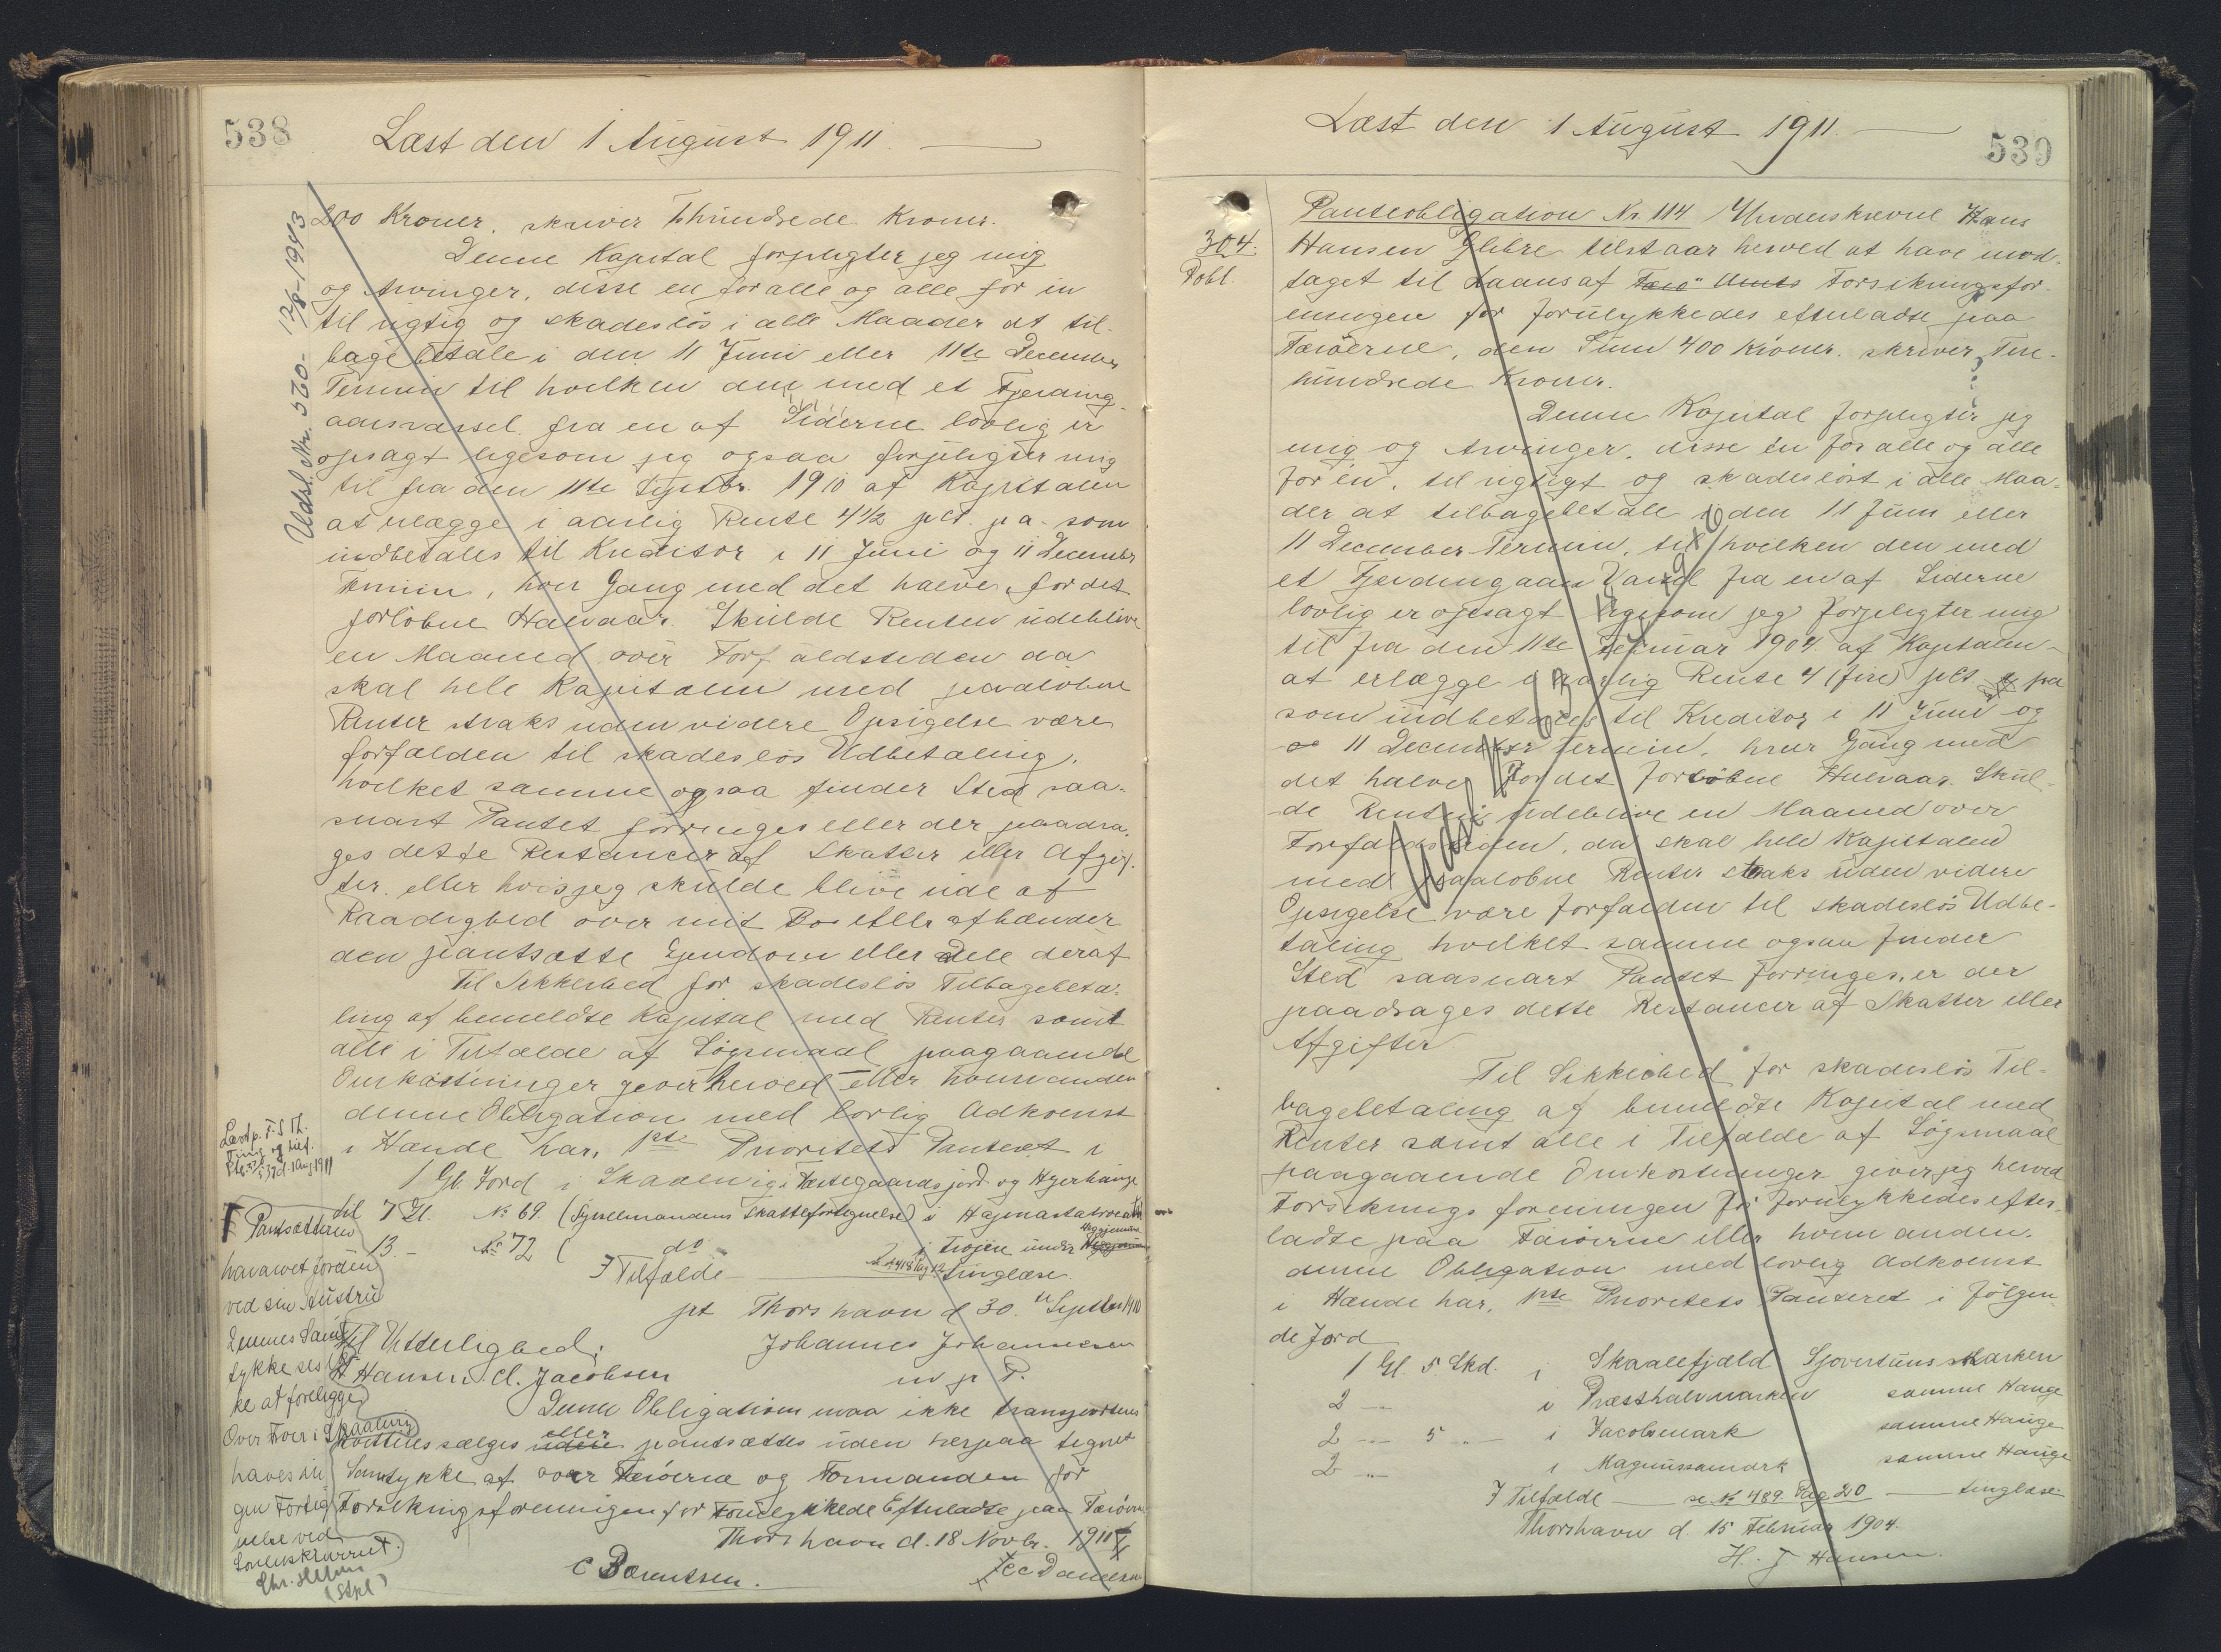 538
Læst den 1 August 1911.
Udsl. Nr. 520 - 17/8-1943
200 Kroner, skriver Thundrede Kroner.
Denne Kapital forpligter jeg mig
og Arvinger, disse en for alle og alle for en
til rigtig og skadesløs i alle Maader at til-
bagebetale i den 11 Juni eller 11te December
Termin til hvilken den med et Fjerding-
aarsvarsel fra en af Siderne lovlig er
opsagt ligesom jeg ogsaa forpligter mig
til fra den 11te Septbr. 1910 af Kapitalen
at erlægge i aarlig Rente 4½ pCt. p a. som
indbetales til Kreditor i 11 Juni og 11 December
Termin, hver Gang med det halve for det
forløbne Halvaar. Skulde Renten udeblive
en Maaned over Forfaldstiden da
skal hele Kapitalen med paaløbne
Renter straks uden videre Opsigelse være
forfalden til skadesløs Udbetaling,
hvilket samme ogsaa finder Sted saa-
snart Pantet forringes eller der paadra-
ges dette Restancer af Skatter eller Afgif-
ter. eller hvis jeg skulde blive ude af
Raadighed over mit Bo eller afhænder
den pantsatte Ejendom eller Dele deraf
Til Sikkerhed for skadesløs Tilbagebeta-
ling af bemeldte Kapital med Renter samt
alle i Tilfælde af Søgsmaal paagaaende
Omkostninger giver herved eller hvem anden
denne Obligation med lovlig Adkomst
i Hænde har, 1ste Prioritets Panteret i
1 Gl. Jord i Skaalevig i Fæstegaardsjord og Hyerhauge
til 7 Gl. No 69. (Sysselmandens Skattefortegnelse) i
13 - No 72 ( do i Trøjen under
I Tilfælde No 418 Pag 12 tinglæse.
pt Thorshavn d 30. te Septbr 1910
Til Vitterlighed: Johannes Johannesen
H Hansen. C. Jacobsen m p P.
Denne Obligation maa ikke transporteres
kvitteres sælges eller pantsættes uden herpaa tegnet
Samtykke af over Færøerne og Formanden for
Forsikringsforeningen for Forulykkede Efterladte paa Færøerne
Thorshavn d. 18 Novbr. 1911
C Bærentsen. J C C Danielsen
Læst p. F. S Th.
Ting og
1 Aug 1911
Pantsætteren
har arvet Jorden
ved sin Hustru
Dennes Sam-
tykke ses ik-
ke at foreligge
Over Huse i Skaalevig
haves in-
gen Forteg-
nelse ved
Sorenskriveriet.
539
Læst den 1 August 1911.
304.
Pobl.
Panteobligation Nr 114 Underskrevne Hans
Hansen Glibre tilstaar herved at have mod-
taget til Laans af Færø Amts Forsikringsfor-
eningen for forulykkedes efterladte paa
Færøerne, den Sum 400 Kroner. skriver Fire-
hundrede Kroner.
Denne Kapital forpligter jeg
mig og Arvinger. disse en for alle og alle
for én. til rigtigt og skadesløst i alle Maa-
der at tilbagebetale i den 11 Juni eller
11 December Termin, til hvilken den med
et Fjerdingaars Varsel fra en af Siderne
lovlig er opsagt ligesom jeg forpligter mig
til fra den 11te Februar 1904 af Kapitalen
at erlægge i aarlig Rente 4 (fire) pCt p a
som indbetales til Kreditor i 11 Juni og
11 December Termin, hver Gang med
det halve for det forløbne Halvaar. Skul-
de Renten udeblive en Maaned over
Forfaldstiden, da skal hele Kapitalen
med paaløbne Renter straks uden videre
Opsigelse være forfalden til skadesløs Udbe-
taling hvilket samme ogsaa finder
Sted saasnart Pantet forringes, er der
paadrages dette Restancer af Skatter eller
Afgifter
Til Sikkerhed for skadesløs Til-
bagebetaling af bemeldte Kapital med
Renter samt alle i Tilfælde af Søgsmaal
paagaaende Omkostninger giver jeg herved
Forsikringsforeningen for forulykkedes efter-
ladte paa Færøerne eller hvem anden.
denne Obligation med lovlig Adkomst
i Hænde har, 1ste Prioritets Panteret i følgen-
de Jord
1 Gl. 5 Skd. i Skaalefjæld Sjovertuns Marken
2 - i Præsthalvmarken samme Hauge
2 - 5 - i Jacobsmark samme Hauge
2 - i Magnussamark samme Hauge
I Tilfælde se No 489 Pag 20 tinglæse
Thorshavn d. 15 Februar 1904.
H. J Hansen.